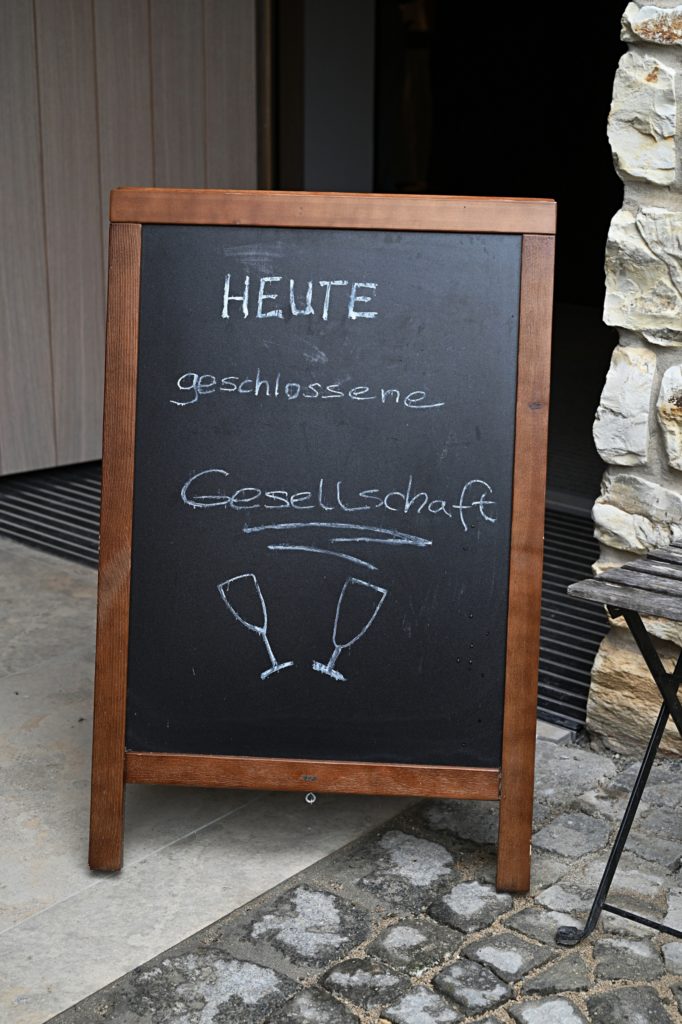 HEUTE
geschlossene
Gesellschaft